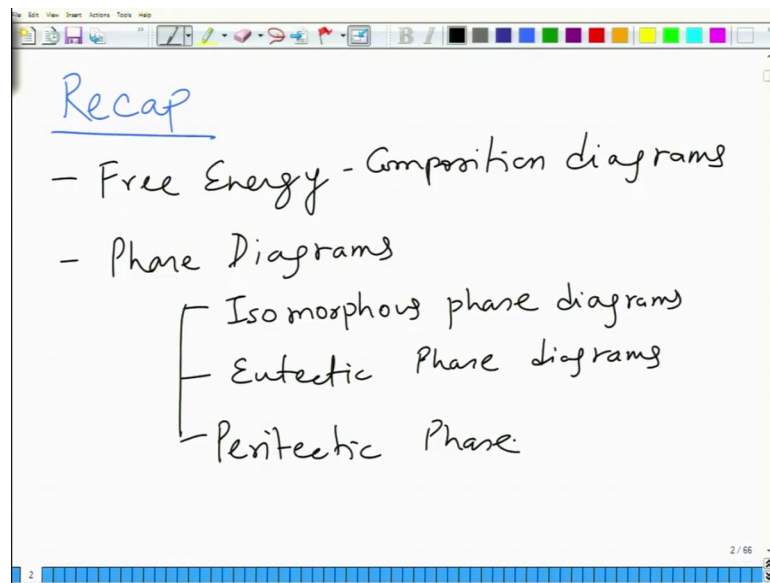 File Edit View Insert Actions Tools Help
B I
Recap
- Free Energy - Composition diagrams
- Phase Diagrams
- Isomorphous phase diagrams
- Eutectic Phase diagrams
- Peritectic Phase
2 / 66
2